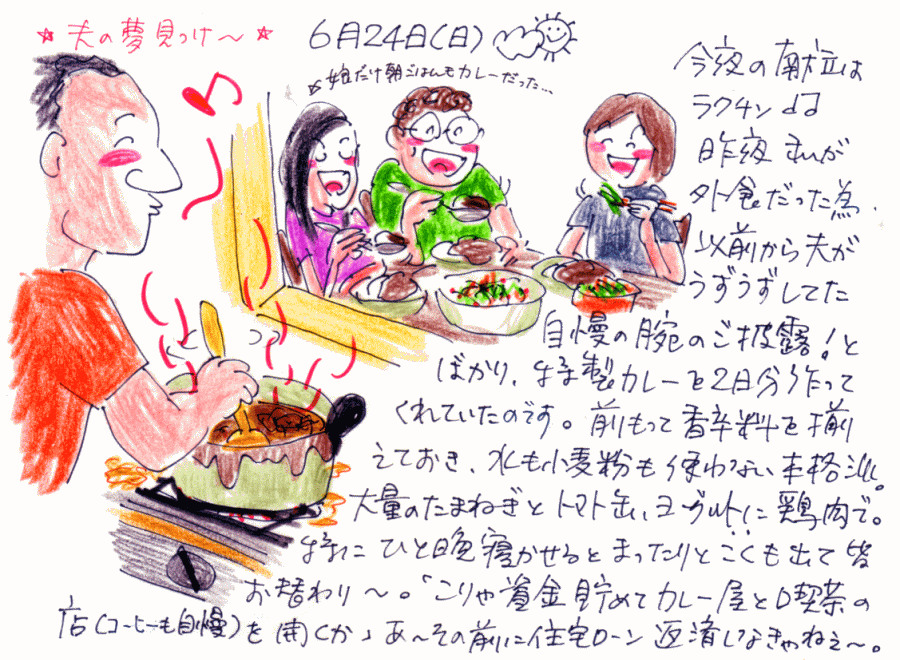 ☆ 夫の夢見つけ〜 ☆
6月24日(日)
娘だけ朝ごはんもカレーだった…
今夜の献立は
ラクチン♪
昨夜 私が
外食だった為、
以前から夫が
うずうずしてた
自慢の腕のご披露!と
ばかり、特製カレーを2日分作って
くれていたのです。前もって香辛料を揃
えておき、水も小麦粉も使わない本格派。
大量のたまねぎとトマト缶、ヨーグルトに鶏肉で。
特に ひと晩寝かせると まったりとこくも出て皆
お替わり〜。「こりゃ資金貯めてカレー屋と喫茶の
店(コーヒーも自慢)を開くか」あ〜その前に住宅ローン 返済しなきゃねぇ〜。